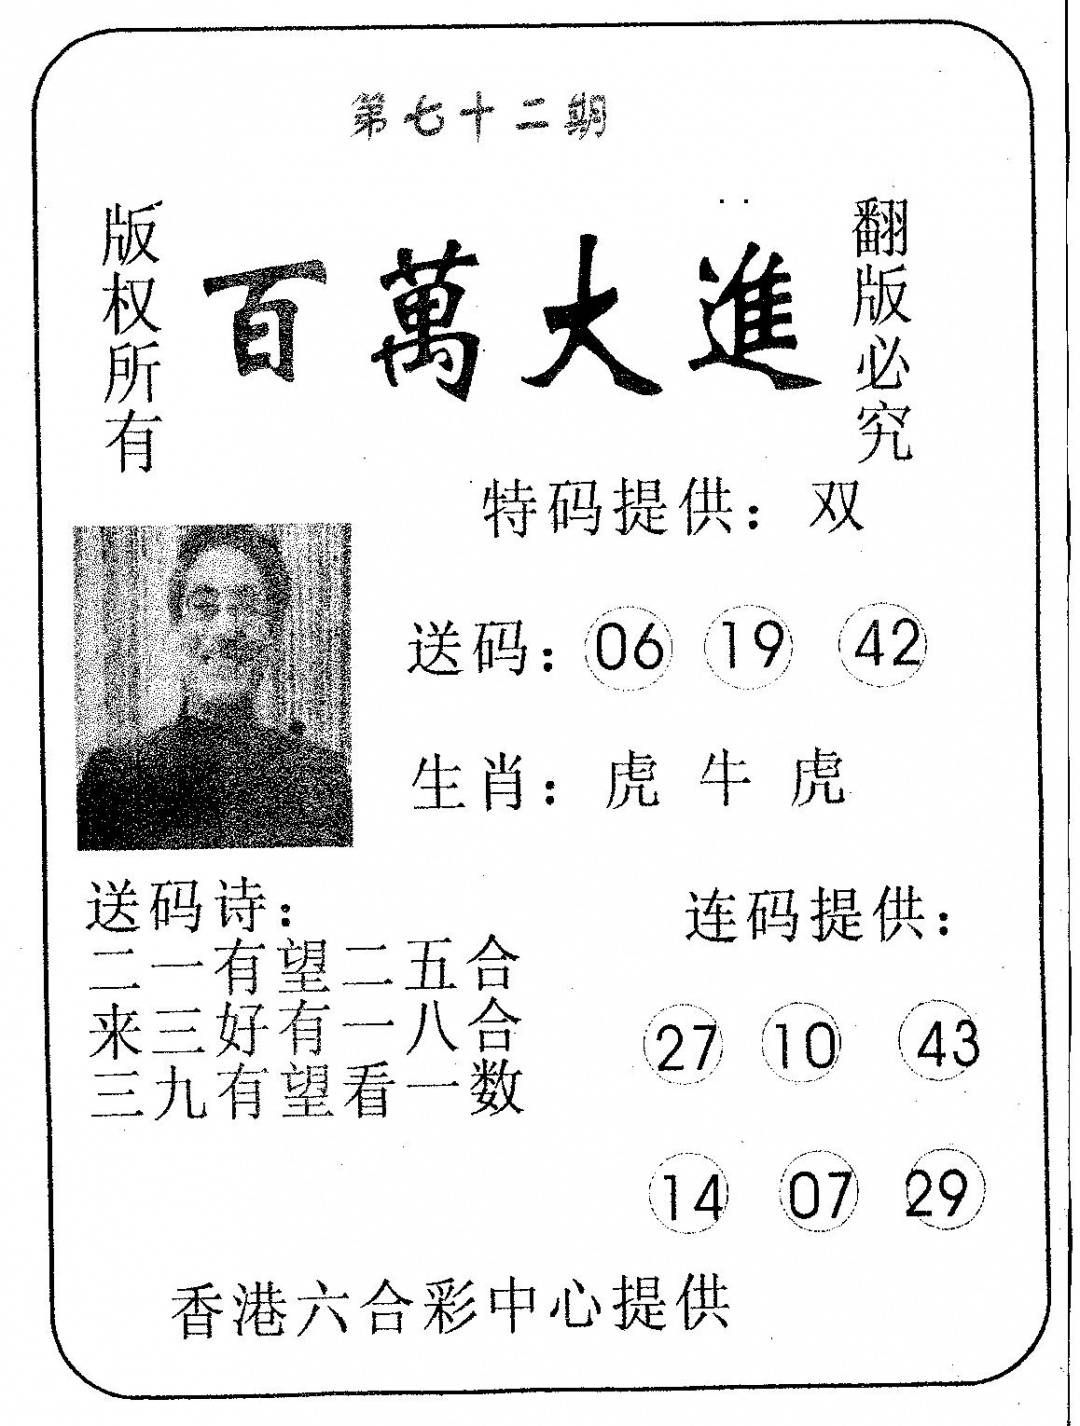 第七十二期
版权所有
百萬大進
翻版必究
特码提供：双
送码：06 19 42
生肖：虎 牛 虎
送码诗：
二一有望二五合
来三好有一八合
三九有望看一数
连码提供：
27 10 43
14 07 29
香港六合彩中心提供